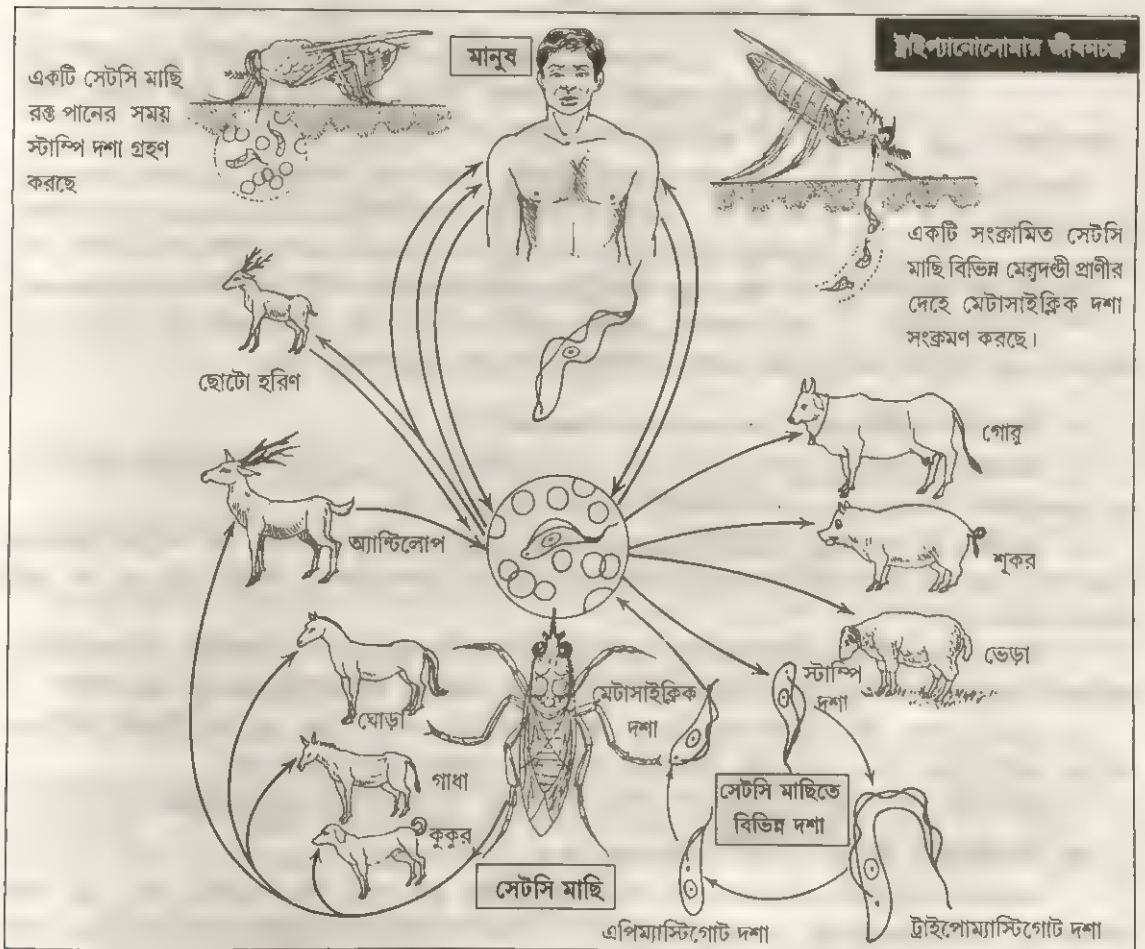 ট্রাইপ্যানোসোমার জীবনচক্র
একটি সেটসি মাছি
রক্ত পানের সময়
স্টাম্পি দশা গ্রহণ
করছে
মানুষ
একটি সংক্রামিত সেটসি
মাছি বিভিন্ন মেরুদণ্ডী প্রাণীর
দেহে মেটাসাইক্লিক দশা
সংক্রমণ করছে।
ছোটো হরিণ
গোরু
অ্যান্টিলোপ
শূকর
ভেড়া
ঘোড়া
মেটাসাইক্লিক
দশা
স্টাম্পি
দশা
গাধা
সেটসি মাছিতে
বিভিন্ন দশা
কুকুর
সেটসি মাছি
এপিম্যাস্টিগোট দশা
ট্রাইপোম্যাস্টিগোট দশা